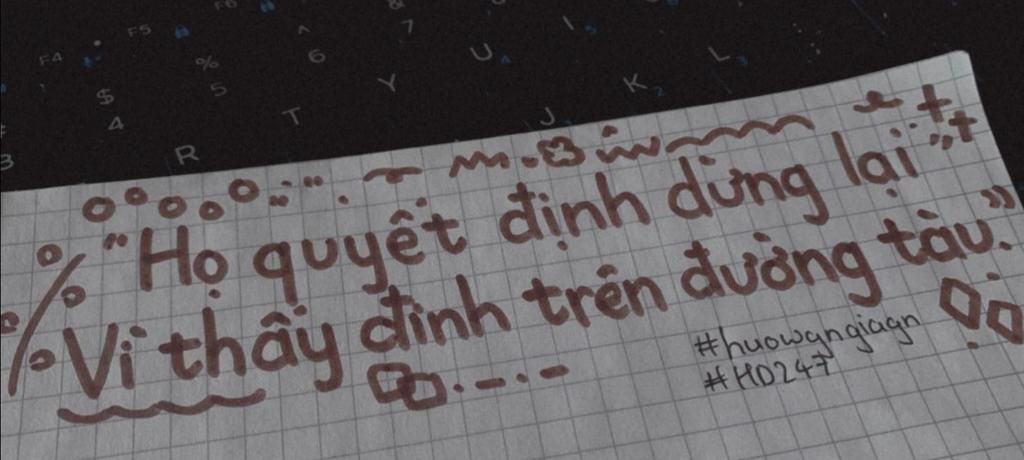 F4 F5 F6 &
$ % ^ 7 I
4 5 6 U L
3 R T Y J K
"Họ quyết định dừng lại"
Vì thấy đinh trên đường tàu."
#huowgngiagn
#HD247